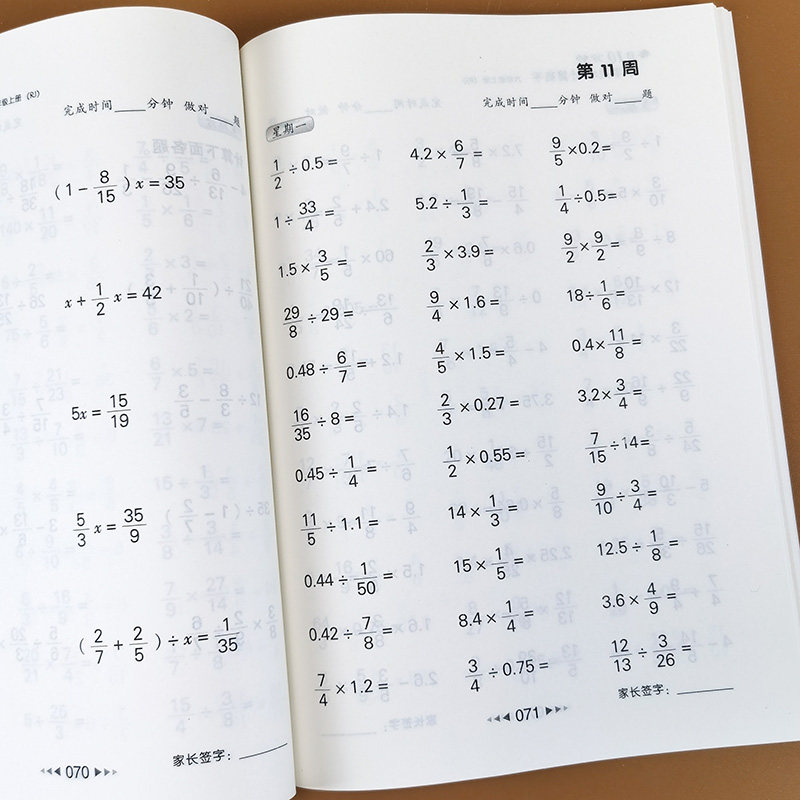 级上册 (RJ)
完成时间____分钟 做对____题
(1 − 8/15) x = 35
x + 1/2 x = 42
5x = 15/19
5/3 x = 35/9
(2/7 + 2/5) ÷ x = 1/35
家长签字：________
070
第 11 周
完成时间____分钟 做对____题
星期一
1/2 ÷ 0.5 = 4.2 × 6/7 = 9/5 × 0.2 =
1 ÷ 33/4 = 5.2 ÷ 1/3 = 1/4 ÷ 0.5 =
1.5 × 3/5 = 2/3 × 3.9 = 9/2 × 9/2 =
29/8 ÷ 29 = 9/4 × 1.6 = 18 ÷ 1/6 =
0.48 ÷ 6/7 = 4/5 × 1.5 = 0.4 × 11/8 =
16/35 ÷ 8 = 2/3 × 0.27 = 3.2 × 3/4 =
0.45 ÷ 1/4 = 1/2 × 0.55 = 7/15 ÷ 14 =
11/5 ÷ 1.1 = 14 × 1/3 = 9/10 ÷ 3/4 =
0.44 ÷ 1/50 = 15 × 1/5 = 12.5 ÷ 1/8 =
0.42 ÷ 7/8 = 8.4 × 1/4 = 3.6 × 4/9 =
7/4 × 1.2 = 3/4 ÷ 0.75 = 12/13 ÷ 3/26 =
家长签字：________
071